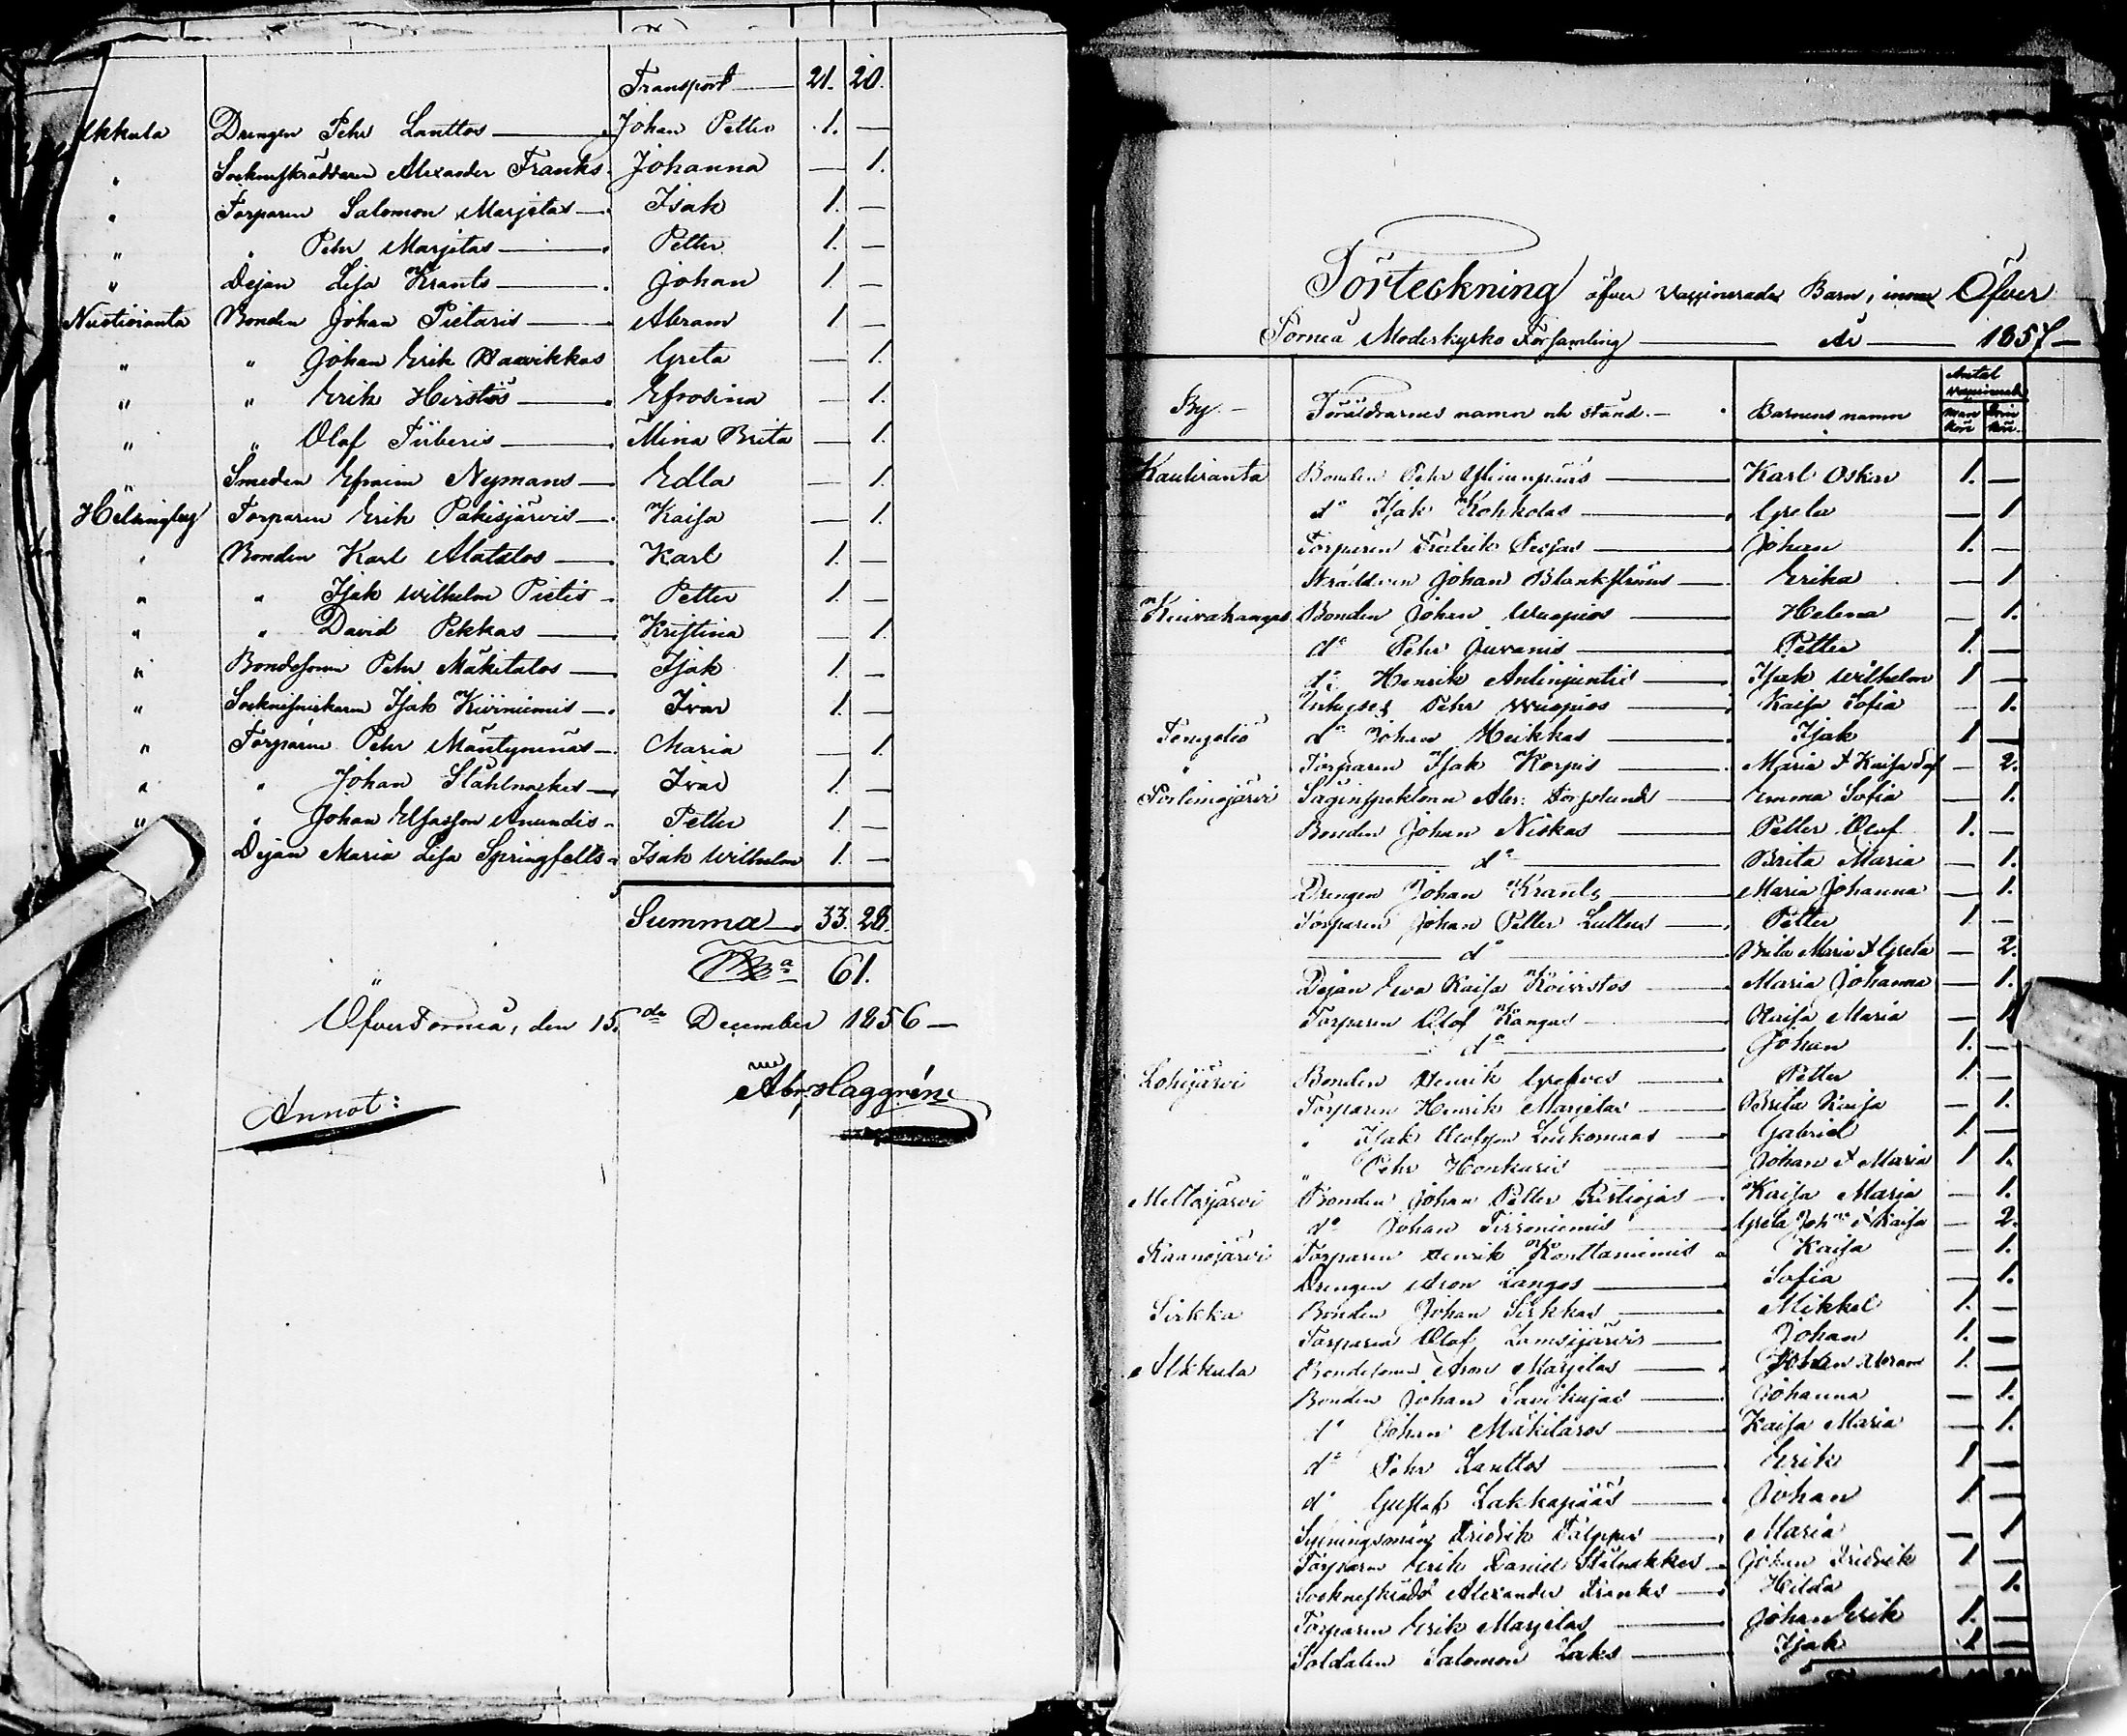 Transport — 21. 20.
Akkula Drengen Pehr Lanttos — Johan Petter 1. —
" Socknskräddaren Alexander Franks Johanna — 1.
" Torparen Salomon Marjetas — Isak 1. —
" " Pehr Marjetas — Petter 1. —
" Dejan Lisa Krants — Johan 1 —
Nuotioranta Bonden Johan Pietaris — Abram 1 —
" " Johan Erik Waarikkas Greta — 1.
" " Erik Hirstiös — Efrosina — 1.
" " Olof Fiiberis — Mina Brita — 1.
" Smeden Efraim Nymans — Edla — 1.
Helsingby Torparen Erik Pakisjärvis — Kaisa — 1.
" Bonden Karl Alatalos — Karl 1. —
" " Isak Wilhelm Pietis Petter 1. —
" " David Pekkas — Kristina — 1.
" Bondesonen Pehr Mäkitalos — Isak 1. —
" Isak Kiviniemis — Ivar 1. —
" Torparen Pehr Mäntyniemis — Maria — 1.
" " Johan Stählnackes — Ivar 1. —
" " Johan Elfasson Anundis Petter 1. —
Dejan Maria Lisa Springfelts Isak Wilhelm 1. —
Summa — 33. 28.
61.
Öfvertorneå, den 15.de December 1856 —
Abr. Haggrén
Annot:
Förteckning öfver Vaccinerade Barn, inom Öfver
Torneå Moderkyrko Församling — År — 1857 —
Antal
vaccinerade
By. — Föräldrarnes namn och stånd. — Barnens namn man kön qvin kön.
Kauliranta Bonden Pehr — Karl Oskar 1. —
do Isak Kohkolas — Greta — 1
Torparen Fredrik — Johan 1. —
Skräddaren Johan Blankströms — Erika — 1
Kuivakangas Bonden Johan Wuopios — Helena — 1.
do Pehr Juvanis — Petter 1. —
do Henrik Antinjuntis — Isak Wilhelm 1 —
Inhyses Pehr Wuopios — Kaisa Sofia — 1.
Tengeliö do Johan Heikkas — Isak 1 —
" Torparen Isak Korpis — Maria & Kaisa Sof — 2.
Portimojärvi Såginspektoren Abr. — Emma Sofia — 1.
Bonden Johan Niskas — Petter Olof 1. —
— do — Brita Maria — 1.
Drengen Johan Krants — Maria Johanna — 1.
Torparen Johan Petter Luttus — Petter 1 —
— do — Brita Maria & Greta — 2.
Dejan Eva Kaisa Koivistos — Maria Johanna — 1.
Torparen Olof Kangas — Kaisa Maria — 1
— do — Johan 1. —
Lohijärvi Bonden Henrik Grefves — Petter 1. —
Torparen Henrik Marjetas — Brita Kaisa — 1.
" Isak Olofsson Leukomaas — Gabriel 1. —
" Pehr Honkaris — Johan & Maria 1 1.
Meltosjärvi Bonden Johan Petter Ristiojas — Kaisa Maria — 1.
do Johan Tirroniemis — Greta Joh:na & Kaisa — 2.
Raanojärvi Torparen Henrik Konttaniemis Kaisa — 1.
Drengen Aron Langos — Sofia — 1.
Sirkka Bonden Johan Sirkkas — Mikkel 1. —
Torparen Olof Lamsijärvis — Johan 1. —
Akkula Bondesonen Aron Marjetas — Johan Abram 1. —
Bonden Johan Savikujas — Johanna — 1.
do Johan Mäkitaros — Kaisa Maria — 1.
do Pehr Lanttos — Erik 1 —
do Gustaf Lakkapääs — Johan 1 —
Syningsman Fridrik — Maria — 1
Torparen Erik Daniel Stålnakkes Johan Fridrik 1 —
Alexander Franks — Hilda — 1.
Torparen Erik Marjetas — Johan Erik 1. —
Soldaten Salomon Laks — Isak 1 —